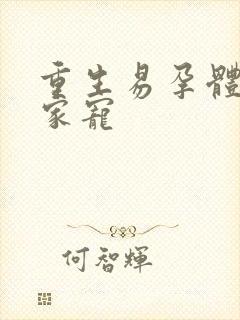 重生易孕體
家寵
何智輝